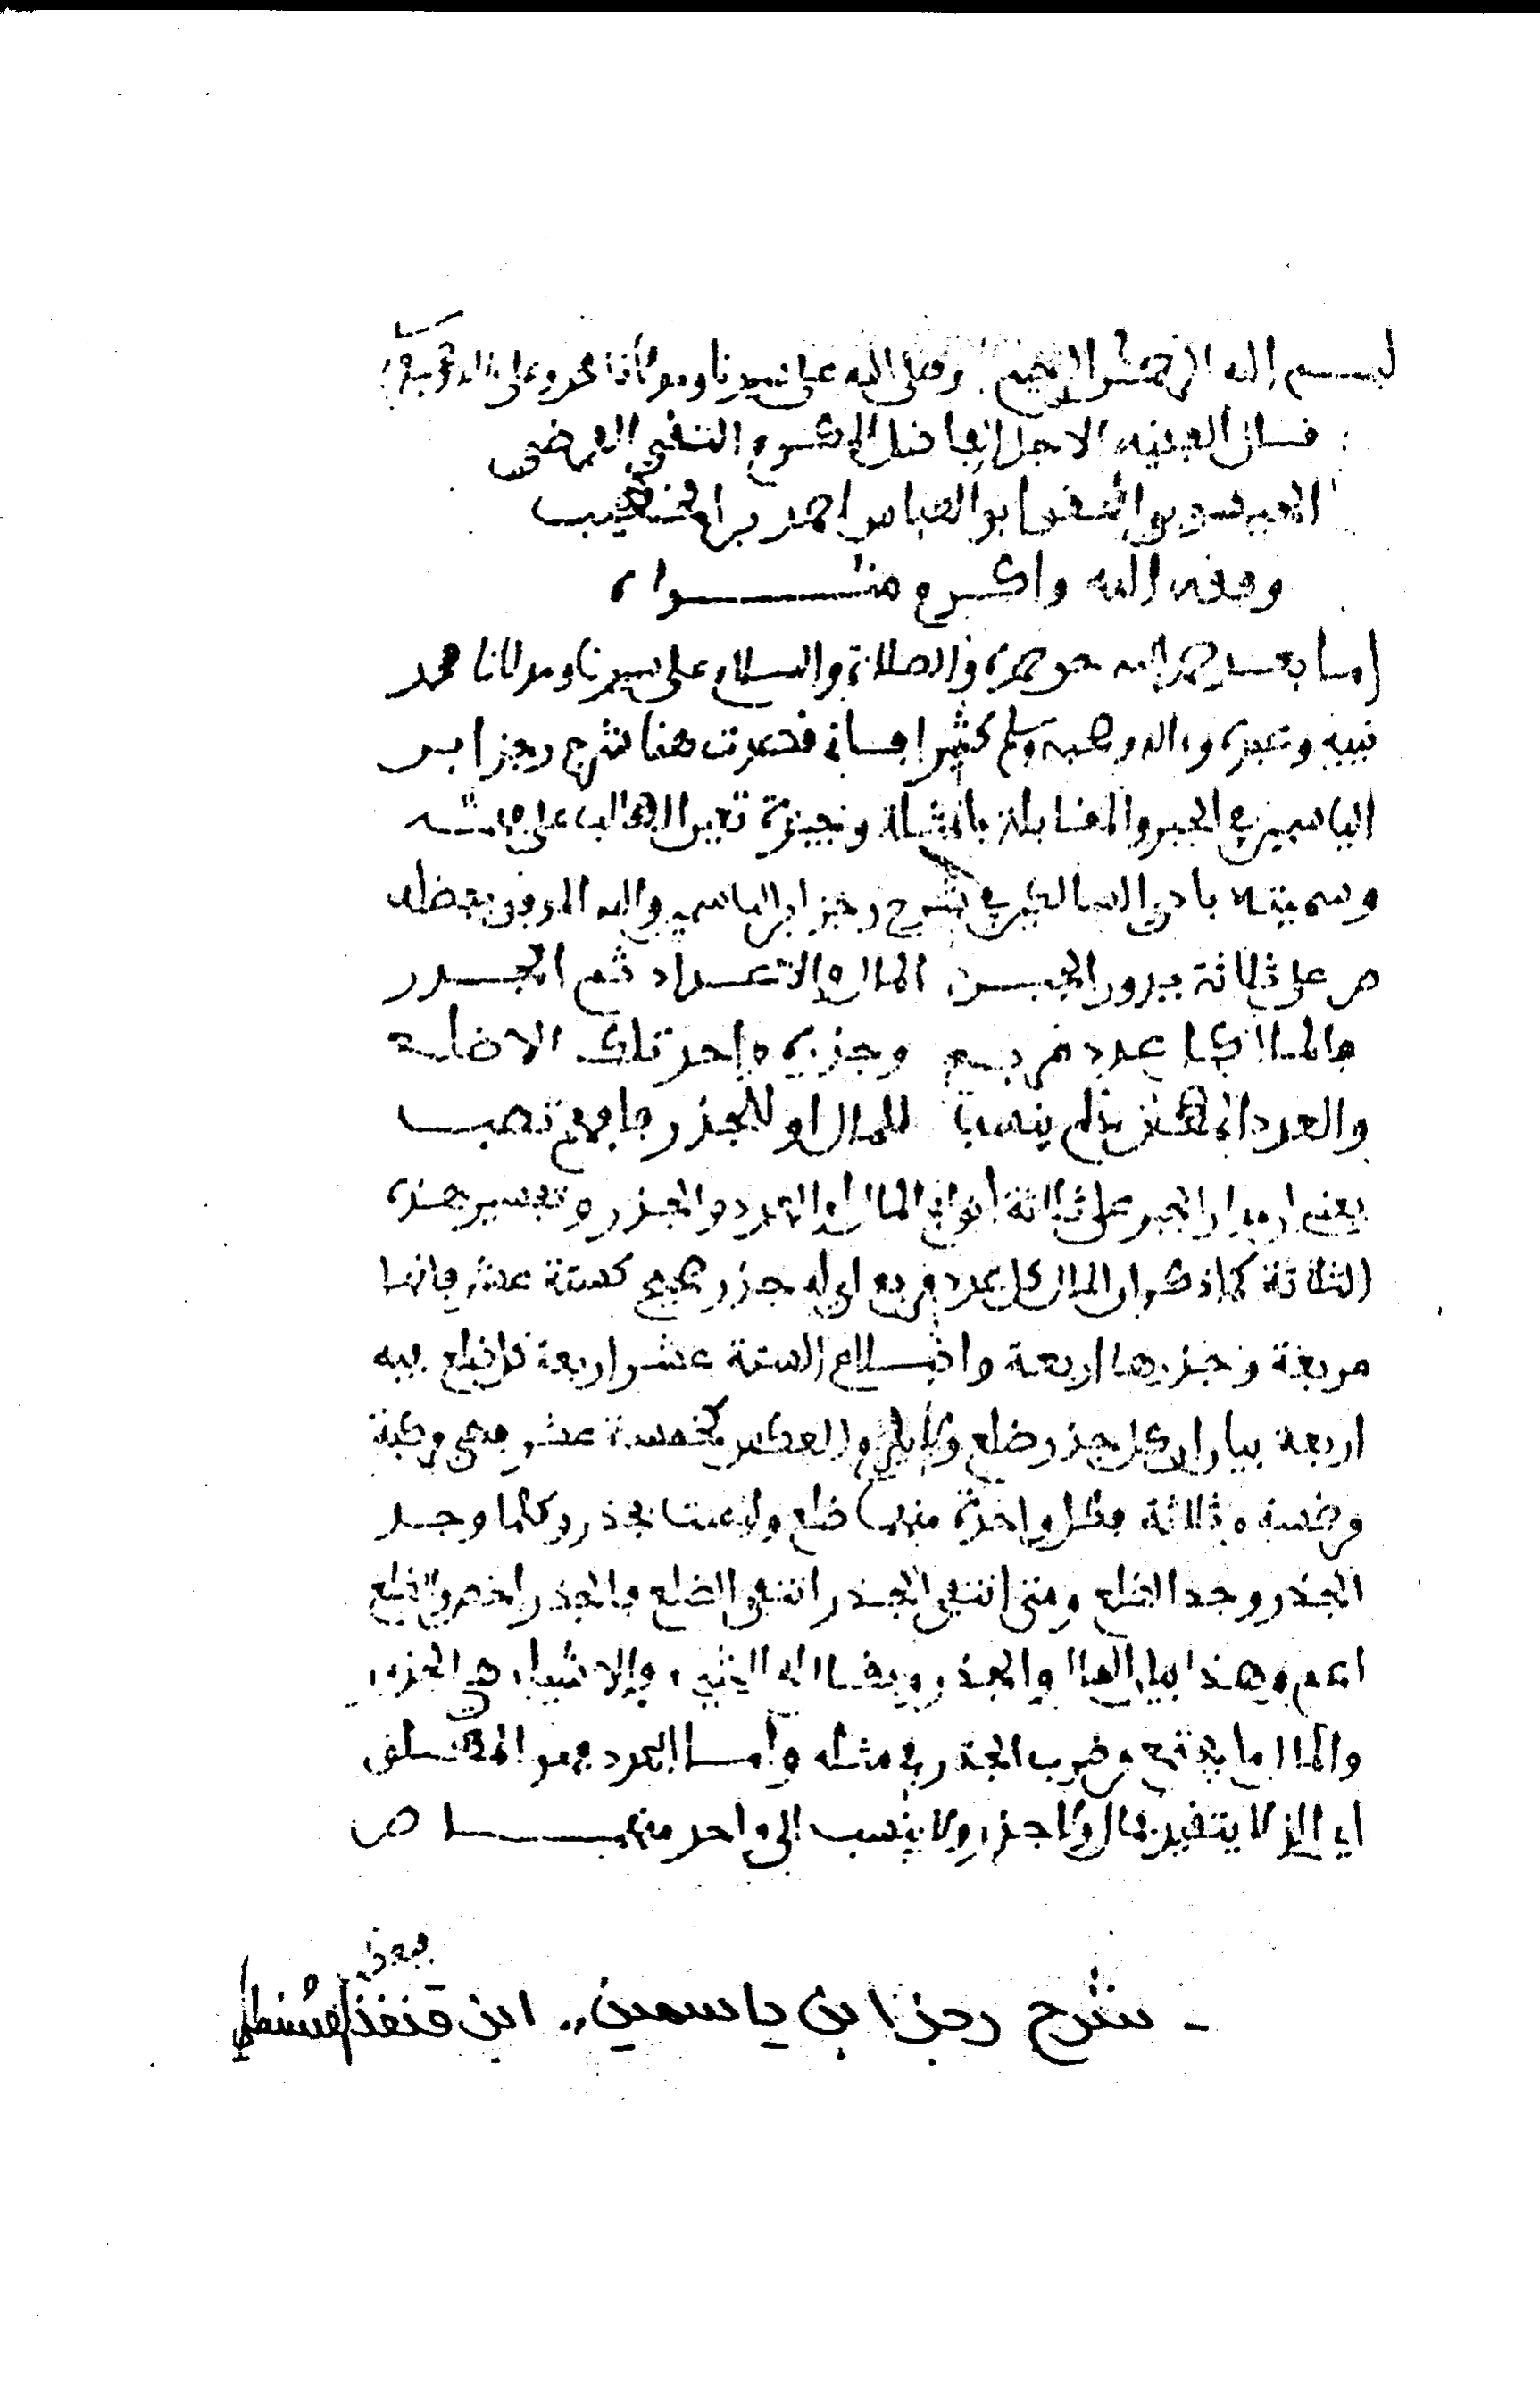 بسم الله الرحمن الرحيم وصلى الله على سيدنا ومولانا محمد وعلى ءاله وصحبه
قال الفقيه الاجل الفاضل المكرم التقي الفرضي
ابو العباس احمد بن الخطيب
وفقه الله واكرم مثواه
اما بعد حمد الله حق حمده والصلاة والسلام على سيدنا ومولانا محمد
نبيه وعبده وءاله وصحبه وسلم كثيرا فاني قصدت هنا شرح رجز ابن
الياسمين في الجبر والمقابلة بامثلة وجيزة تعين الطالب على
وسميته بادي السالكين في شرح رجز ابن الياسمين والله الموفق بفضله
ص على ثلاثة يدور الجبر المال والاعداد ثم الجذر
والمال كل عدد مربع وجذره واحد تلك الاضلع
والعدد المطلق ما لم ينسب للمال او للجذر فافهم تصب
يعني ان مدار الجبر على ثلاثة انواع المال والعدد والجذر وتفسير هذه
الثلاثة كما ذكر ان المال كل عدد مربع اي له جذر صحيح كستة عشر فانها
مربعة وجذرها اربعة واضلاع الستة عشر اربعة لانضلع فيه
اربعة بيان ان كل جذر ضلع ولا يلزم العكس كخمسة عشر فهي مركبة
وخمسة وثلاثة فكل واحدة منهما ضلع وليست بجذر وكلما وجد
الجذر وجد الضلع ومتى انتفى الجذر انتفى الضلع فالجذر اخص والضلع
اعم وهذا بيان المال والجذر ويقال له الشيء والاشياء هي الجذور
والمال ما يجتمع من ضرب الجذر في مثله واما العدد فهو المطلق
اي الذي لا يتقيد بمال ولا جذر ولا ينسب الى واحد منهما ص
- شرح رجز ابن ياسمين,, ابن قنفذ القسنطيني